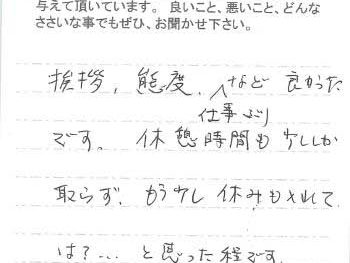 与えて頂いています。 良いこと、悪いこと、どんな
ささいな事でもぜひ、お聞かせ下さい。
挨拶、態度、仕事ぶりなど 良かった
です。 休憩時間も少ししか
取らず、もう少し 休みもとれて
は?... と思った程です。